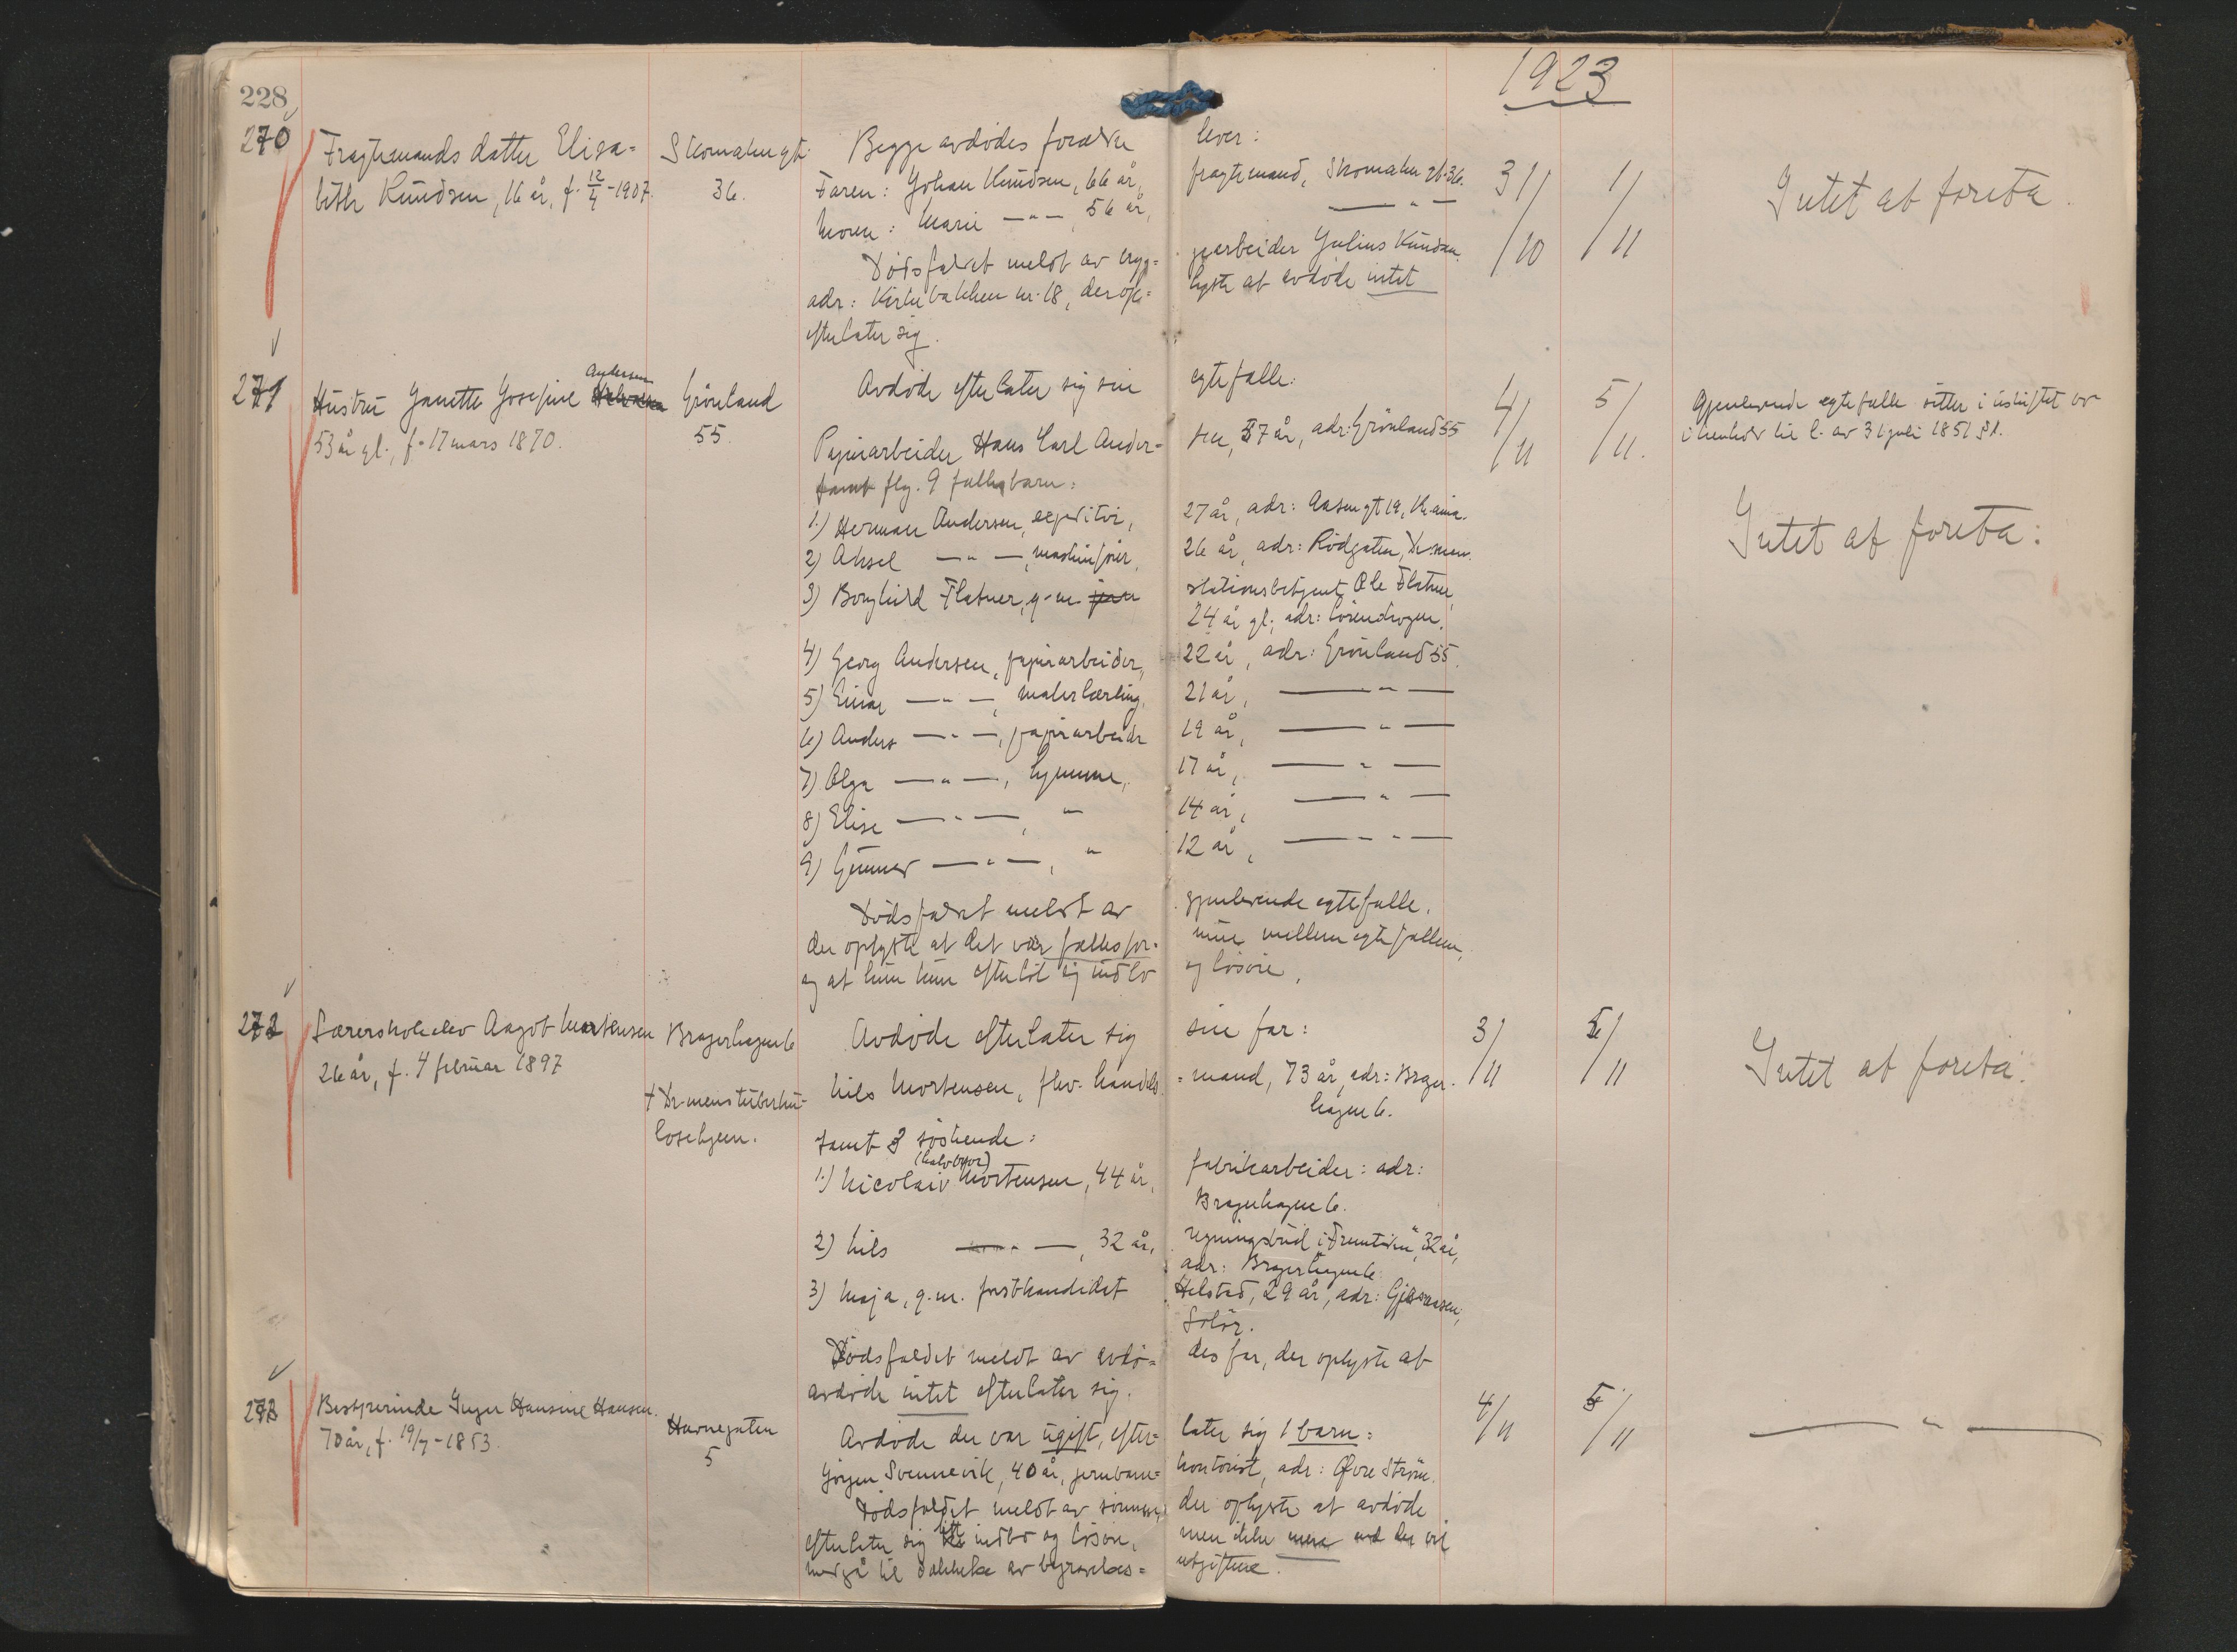 228
1923
270
Fragtemands datter Elisa=
beth Knudsen, 16 år, f. 12/4-1907.
Skomakergt.
36.
Begge avdødes forældre lever:
Faren: Johan Knudsen, 66 år, fragtemand, Skomakergt. 36.
Moren: Marie —"—, 56 år, —"—
Dødsfaldet meldt av bryg= gearbeider Julius Knudsen.
adr: Kirkebakken nr. 18, der op= lyste at avdøde intet
efterlater sig.
31/10
1/11
Intet at foreta.
271
Hustru Janette Josefine Andersen
53 år gl., f. 17 mars 1870.
Grönland
55.
Avdøde efterlater sig sin egtefælle:
Papirarbeider Hans Carl Ander= sen, 57 år, adr: Grönland 55
samt flg. 9 fællesbarn:
1.) Herman Andersen, expeditör, 27 år, adr: Aasengt 19, Kr.ania.
2) Aksel —"—, maskinfører, 26 år, adr: Rödgaten, Dr.men.
3) Borghild Flatner, g. m. stationsbetjent Ole Flatner,
24 år gl., adr:
4) Georg Andersen, papirarbeider, 22 år, adr: Grönland 55.
5) Einar —"—, malerlærling, 21 år, —"—
6) Anders —"—, papirarbeider 19 år, —"—
7) Olga —"—, hjemme, 17 år, —"—
8) Elise —"—, " 14 år, —"—
9) Gunnar —"—, " 12 år, —"—
Dødsfaldet meldt av gjenlevende egtefælle,
der oplyste at det var fællesbo= mellem egtefællene,
og at hun kun efterlot sig indbo og løsøre.
4/11
5/11.
Gjenlevende egtefælle sitter i uskiftet bo
i henhold til l. av 31 juli 1851 § 1.
Intet at foreta:
272
Lærerskoleelev Aagot Mortensen
26 år, f. 4 februar 1897
Bragerhagen 6
† Dr.mens tuberku=
losehjem.
Avdøde efterlater sig sin far:
Nils Mortensen, fhv. handels= mand, 73 år, adr: Brager=
hagen 6.
samt 3 søskende:
(halvbror)
1.) Nicolai Mortensen, 44 år, fabrikarbeider: adr:
Bragerhagen 6.
2) Nils —"—, 32 år, regningsbud i "Fremtiden", 32 år,
adr: Bragerhagen 6
3) Maja, g. m. forstkandidat Helstad, 29 år, adr: Gjesaasen,
Solör.
Dødsfaldet meldt av avdø= des far, der oplyste at
avdøde intet efterlater sig.
3/11
5/11
Intet at foreta.
273
Bestyrerinde Inger Hansine Hansen.
70 år, f. 19/7-1853.
Havnegaten
5
Avdøde der var ugift, efter= later sig 1 barn:
Jörgen Svennevik, 40 år, jernbane= kontorist, adr: Øvre Ström.
Dødsfaldet meldt av sönnen, der oplyste at avdøde
efterlater sig litt indbo og løsøre, men ikke mere end der vil
medgå til dækkelse av begravelses= utgiftene.
4/11
5/11
—"—